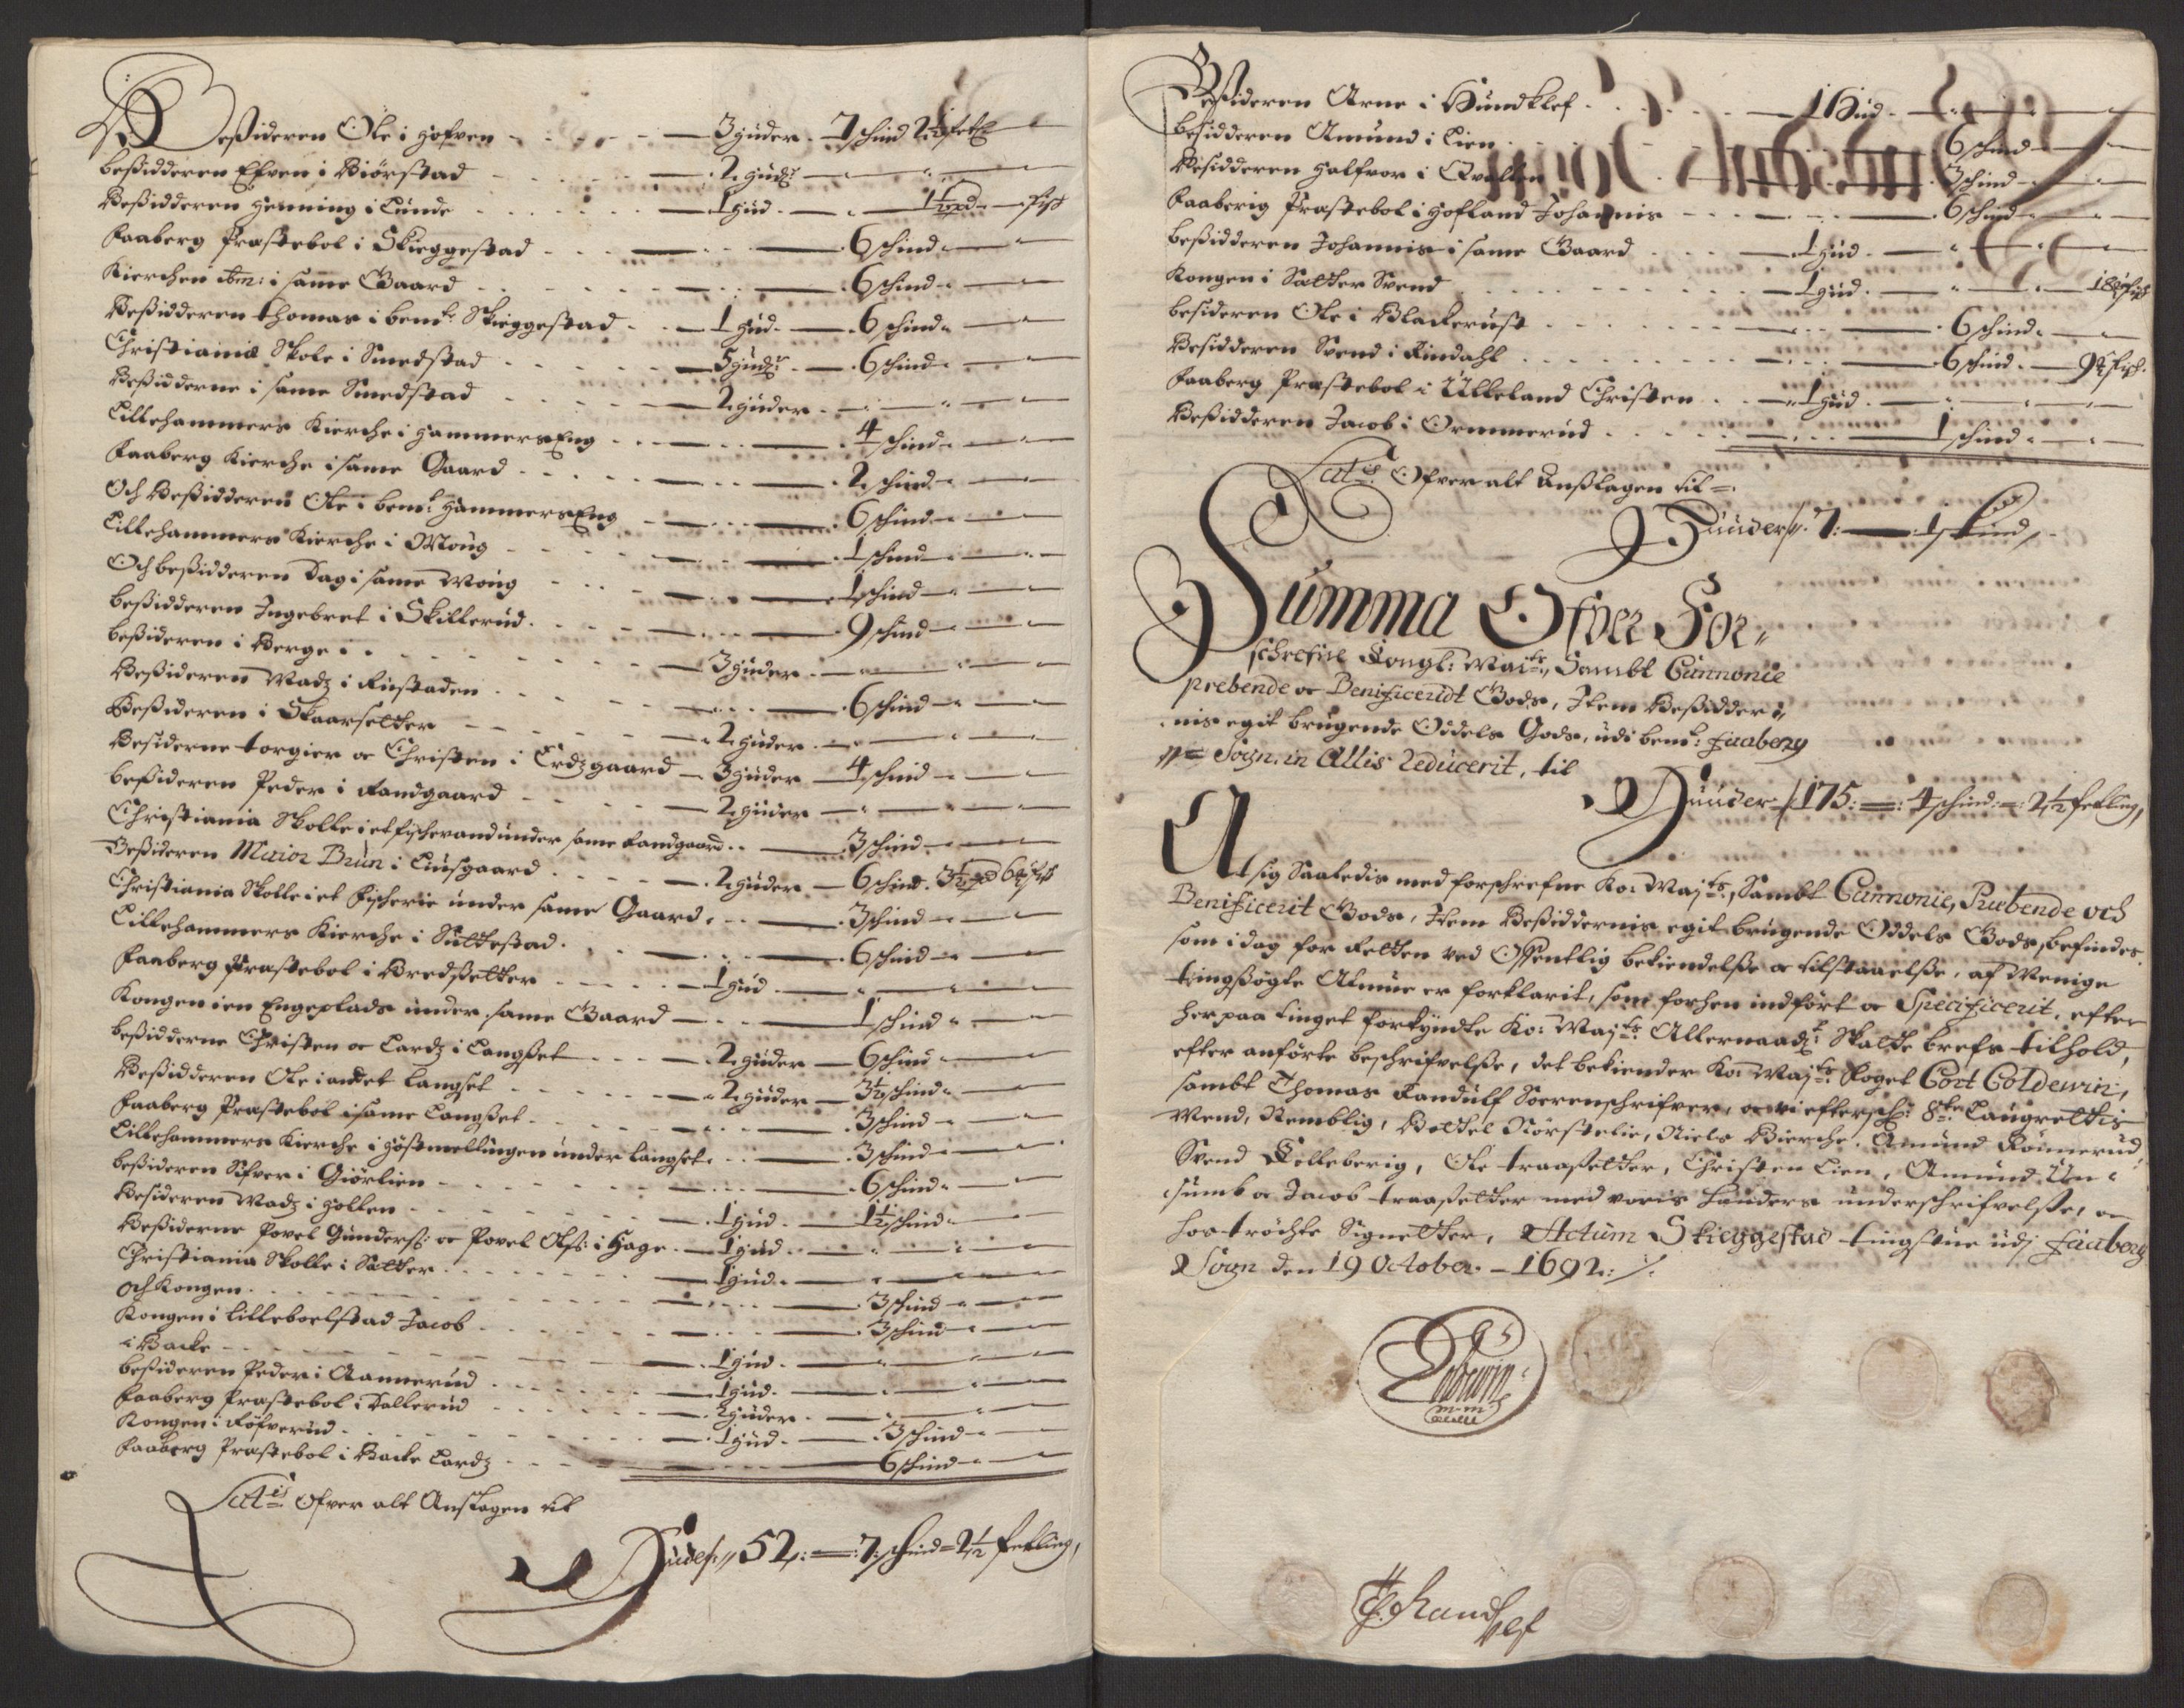 Beßideren Ole i Hofven 3 huder 7 schind 2½ fetl
beßidderen Efven i Biörstad 2 hudr
Beßidderen Henning i Lunde 1 hud 1½ pd fisk
Faaberg Præstebol i Skieggestad 6 schind
Kierchen ibm: i same Gaard 6 schind
Beßidderen Thomas i bemt: Skieggestad 1 hud 6 schind
Christiania Skole i Smedstad 5 hudr 6 schind
Beßidderne i same Smedstad 2 huder
Lillehammers Kierche i Hammerseng 4 schind
Faaberg Kierche i same Gaard 2 schind
Och Beßidderen Ole i bemt: Hammerseng 6 schind
Lillehammers Kierche i Moug 1 schind
Och beßidderen Dag i same Moug 1 schind
beßidderen Ingebret i Skillerud 9 schind
beßideren i Berge 3 huder
Beßideren Madz i Rustaden 6 schind
Beßideren i Skaarsetter 2 huder
Besiderne torgier oc Christen i Erdzgaard 3 huder 4 schind
beßideren Peder i Randgaard 2 huder
Christiania Skolle i et fischevand under same Randgaard 3 schind
Beßideren Maior Brun i Liusgaard 2 huder 6 schind 3½ pd 6 fisk
Christiania Skolle i et fischerie under same Gaard 3 schind
Lillehammers Kierche i Sultestad 6 schind
Faaberg Præstebol i Bredßetter 1 hud
Kongen i en Engeplads under same Gaard 1 schind
beßidderne Christen oc Lardz i Langßet 2 huder 6 schind
Beßidderen Ole i andet Langset 2 huder 3½ schind
Faaberg Præstebol i same Langßet 3 schind
Lillehammers Kierche i Höstmellingen under Langset 3 schind
beßideren Sifver i Giörlien 6 schind
Besideren Madz i Hollen 1 hud 1½ schind
Beßiderne Povel Gunderß: oc Povel Olß: i Hage 1 hud
Christiania Skolle i Sætter 1 hud
Och Kongen 3 schind
Kongen i Lilleboelstad Jacob 3 schind
i Backe 1 hud
beßideren Peder i Aannerud 1 hud
Faaberg Præstebol i Dallerud 2 huder
Kongen i Röfverud 1 hud 3 schind
Faaberg Præstebol i Backe Lardz 6 schind
Lat:is Ofver alt Anslagen til
Huder 52: 7: schind 2½ fetling,
Beßideren Arne i Hundklef 1 Hud
beßidderen Amund i Lien 6 schind
Besidderen Halfvor i 3 schind
Faaberig Præstebol i Hofland Johannis 6 schind
beßidderen Johannis i same Gaard 1 hud
Kongen i Sætter Svend 1 hud 18 fisk
besideren Ole i Blackerust 6 schind
Besidderen Svend i Rindahl 6 schind 9 fisk
Faaberg Præstebol i Ulleland Christen 1 hud
Beßidderen Jacob i Ormmerud 1 schind
Lat:is Ofver alt Anslagen til
Huder 7: 1 skind
Summa Ofver For-
schrefne Kongl: Maits, Sambt Cannonie
prebende oc Benificeridt Gods, Item Beßidder
nis egit brugende Oddels Gods, udi bemt: Faaberg
Sogn, in Allis Reducerit, til
Huder 175: 4 schind: 2½ fetling,
At sig Saaledis med forschrefne Ko: Majts, Sambt Cannonie, Præbende och
Benificerit Gods, Item Beßiddernis egit brugende Oddels Gods, befindes,
som i dag for Retten ved Offentlig bekiendelße oc tilstaaelße, af Menige
tingßögte Almue er forklarit, som forhen indfört oc Specificerit, efter
her paa tinget forkyndte Ko: Majts Allernaadt: Skatte brefs tilhold,
efter anförte beschrifvelße, det bekiender Ko: Majts: Foget Cort Coldewin,
sambt Thomas Randulf Sorenschrifver, oc vi efterschr: 8te Laugrettis
Mend, Remblig, Bottel Nörstelie, Niels Bierche, Amund Rönnerud,
Svend Kelleberig, Ole traaßetter, Christen Lien, Amund Un-
sumb oc Jacob traaßetter med voris henders underschrifvelße, oc
hos tröchte Signetter, Actum Skieggestad tingstue udj Faaberg
Sogn den 19 October 1692:/.
Coldewin
m m:
T. Randulf